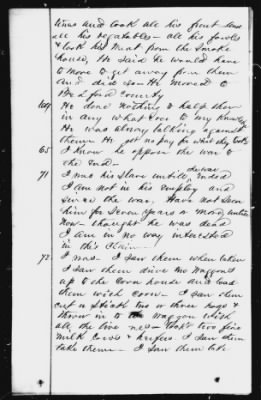 times and took all his front fence
all his vegatables - all his fowls
& took his meat from the smoke
house, He said he would have
to move to get away from them
and did so - He moved to
Bedford County
He done nothing to help them
in any what ever to my knowledge
He was always talking against
them - He got no pay for what they took
65 I know he oppose the war to
the end -
71 I was his slave untill the war ended
I am not in his employ and
since the war. Have not seen
him for seven years or more, untill
now - thought he was dead
I am in no way interested
in this claim -
72 I was - I saw them when taken
I saw them drive two waggons
up to the corn house and load
them with corn - I saw them
cut & stick two or three hogs &
throw in to waggon with
all the live ones - took two fine
milk cows & heifers I saw them
take them - I saw them take